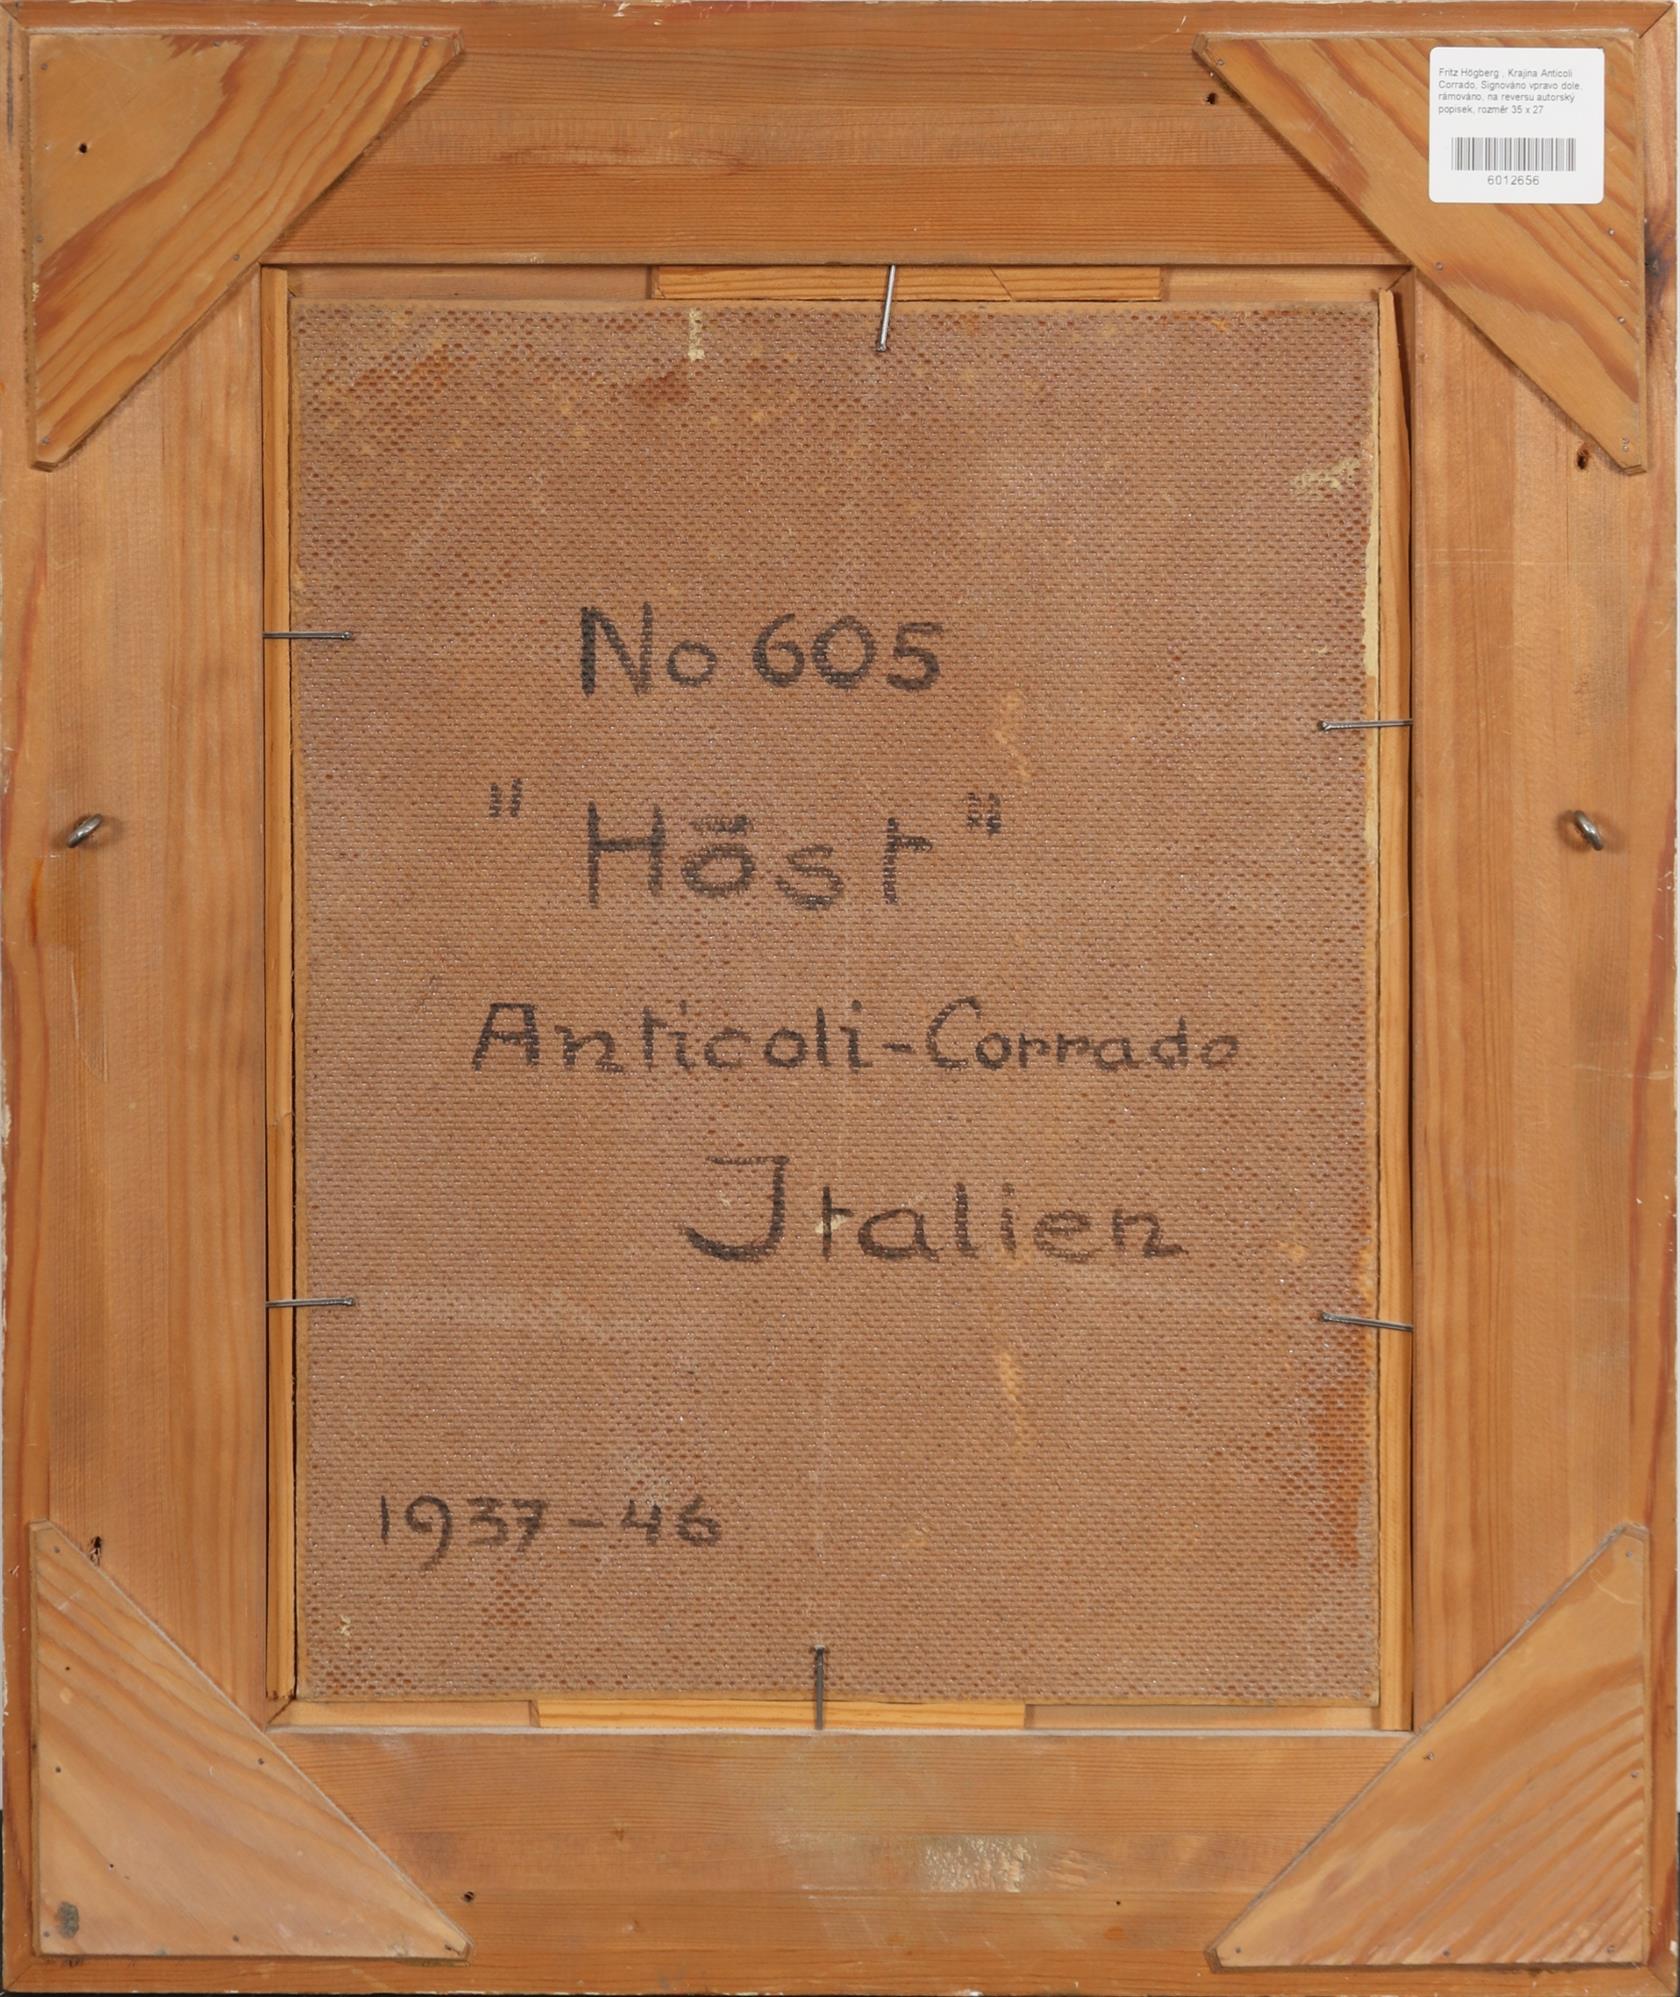 Fritz Högberg , Krajina Anticoli
Corrado, Signováno vpravo dole,
rámováno, na reversu autorský
popisek, rozměr 35 x 27
6012656
No 605
"Höst"
Anticoli-Corrado
Italien
1937-46